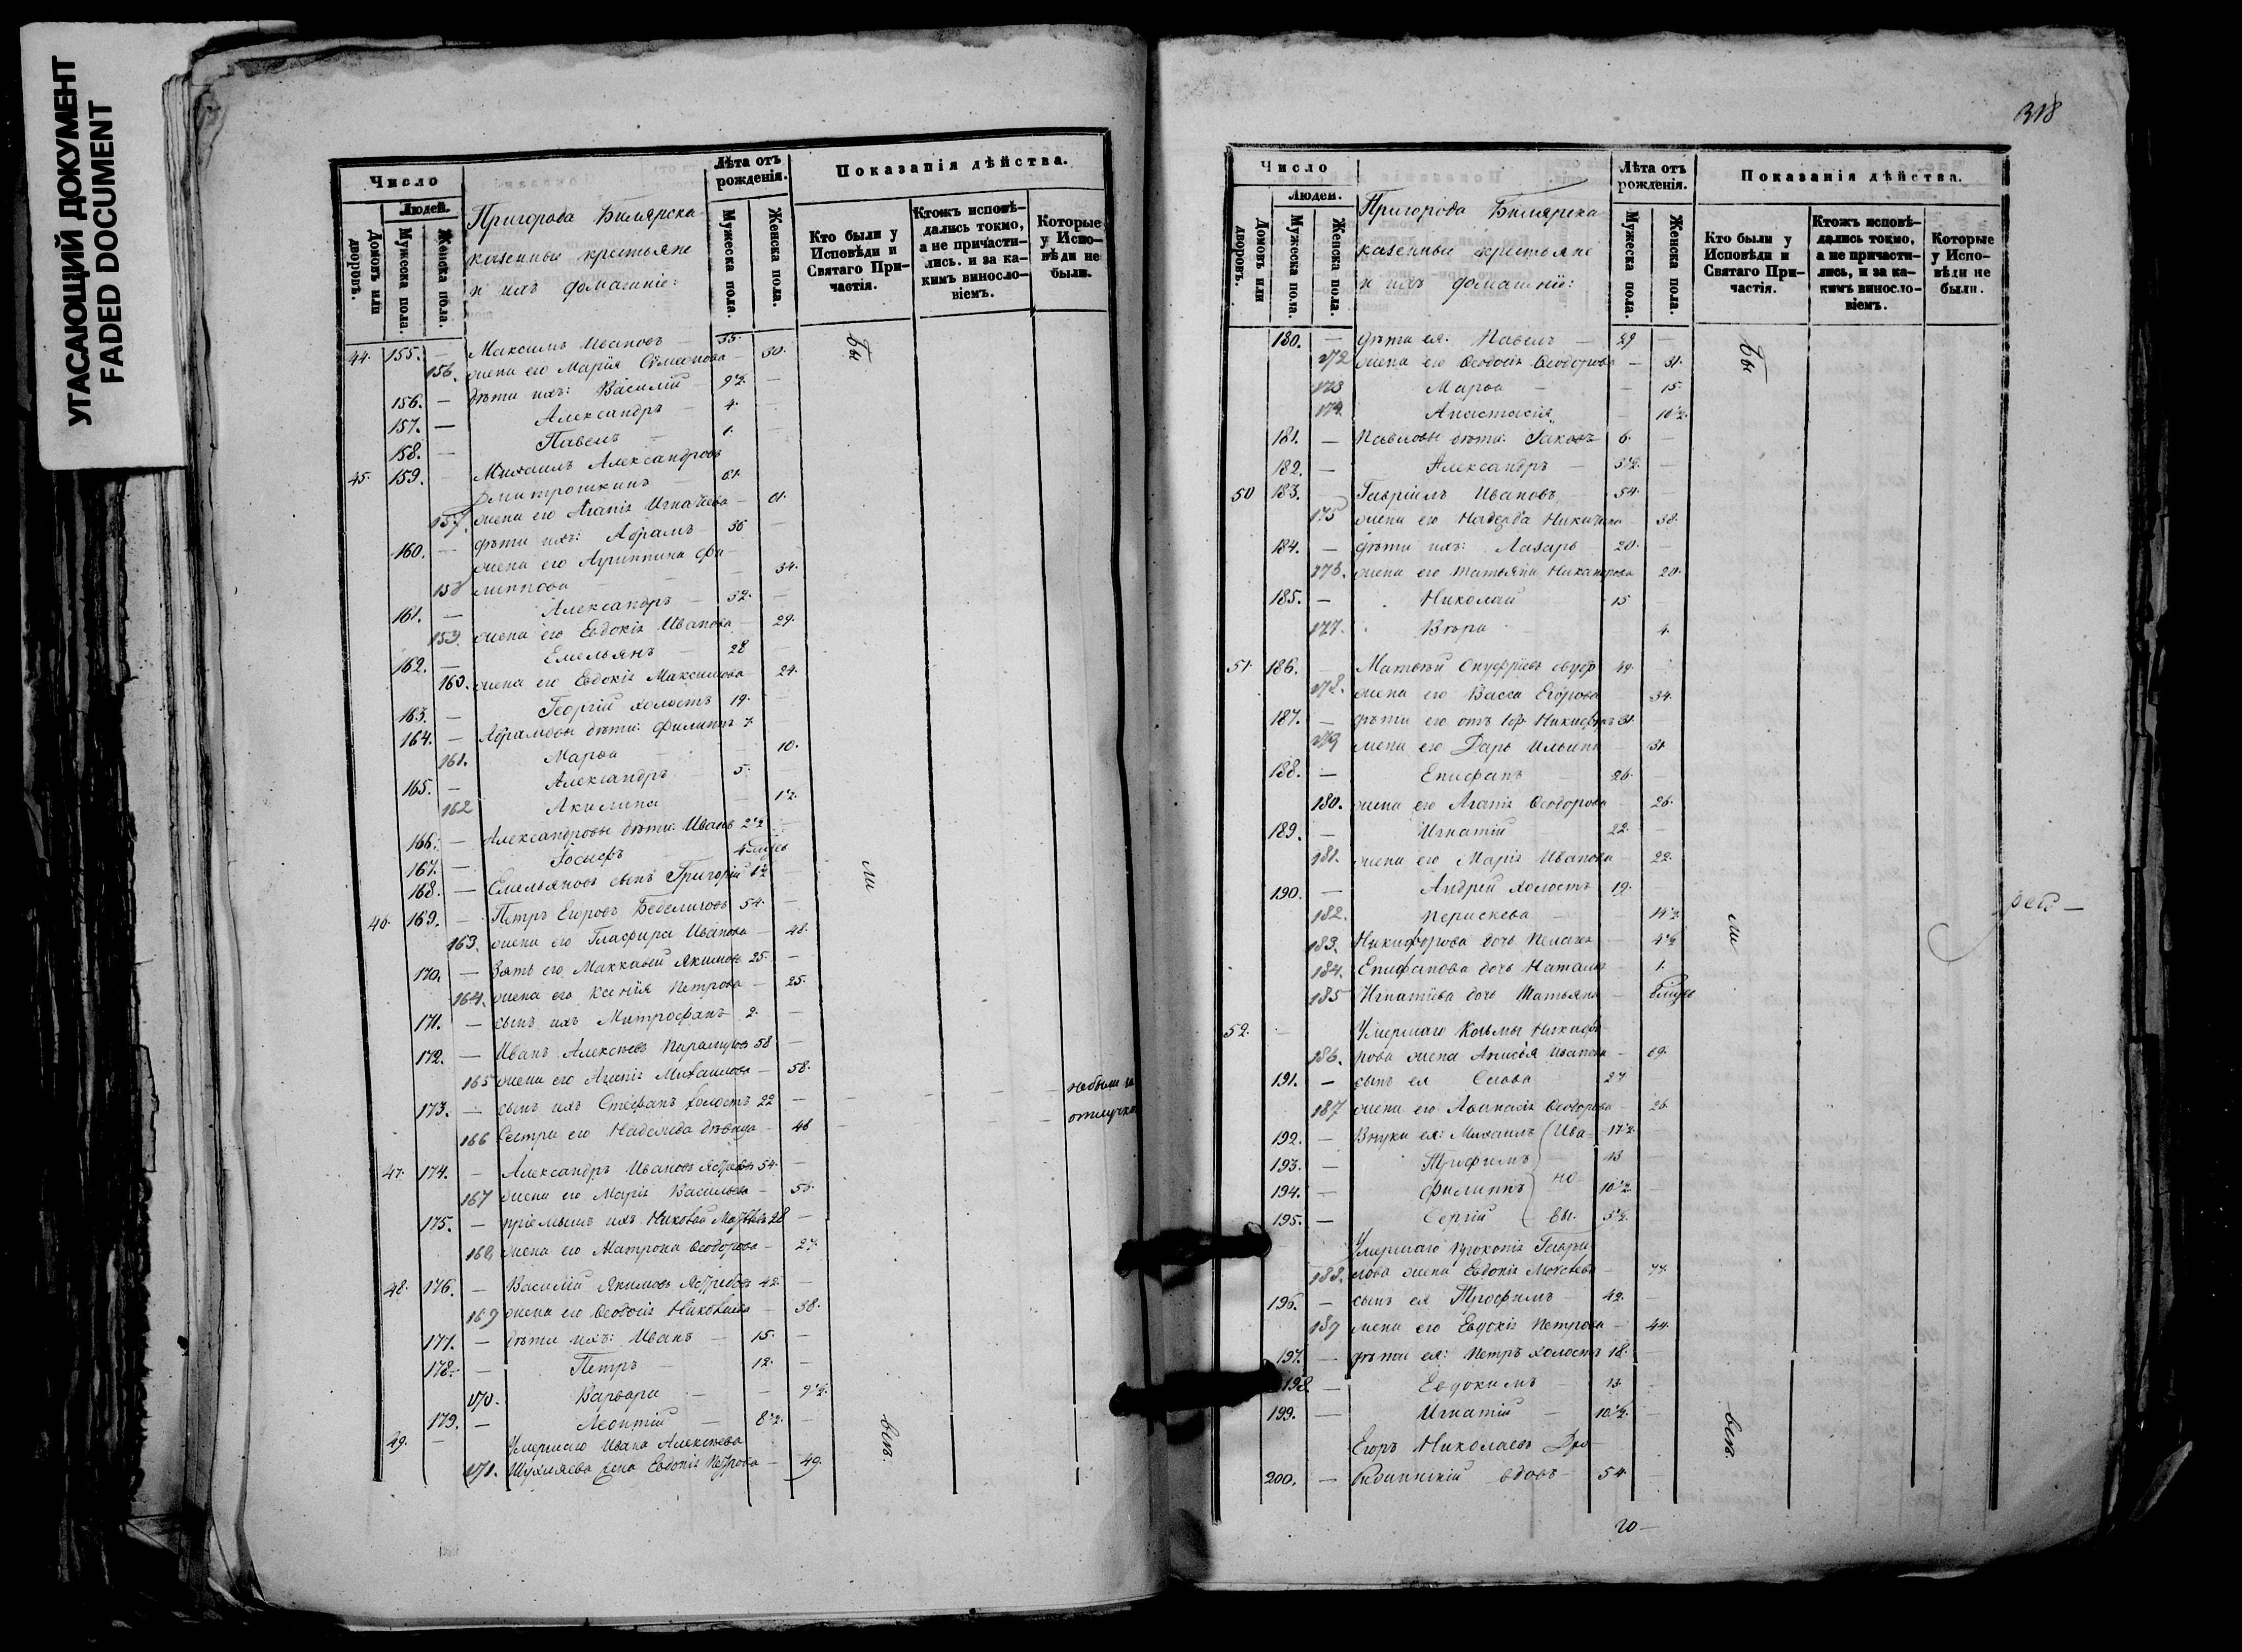 УГАСАЮЩИЙ ДОКУМЕНТ
FADED DOCUMENT
Число
Людей.
Домовъ или дворовъ.
Мужеска пола.
Женска пола.
Пригорода Билярска
казенныи крестьяне
и ихъ домашніе:
Лѣта отъ рожденія.
Мужеска пола.
Женска пола.
Показанія дѣйства.
Кто были у Исповѣди и Святаго Причастія.
Ктожъ исповѣдались токмо, а не причастились. и за какимъ винословіемъ.
Которые у Исповѣди не были.
44. 155. — Максимъ Ивановъ — 35.
156. жена его Марія — 30.
156. — дѣти ихъ: Василій 9½ —
157. — Александръ — 4. —
158. — Павелъ — 1. —
45. 159. — Михаилъ Александровъ
Дмитрошкинъ — 61.
157. жена его Агапія Игнатьева — 61.
160. — дѣти ихъ: Абрамъ — 36 —
жена его Агриппина Фи—
158 липпова — 34.
161. — Александръ — 32. —
159. жена его Евдокія Иванова — 29.
162. — Емельянъ — 28 —
160. жена его Евдокія Максимова 24.
163. — Георгій холостъ 19. —
164. — Абрамовы дѣти: Филиппъ 7. —
161. Марѳа — 10.
165. — Александръ — 5. —
162 Акилина — 1½.
166. — Александровы дѣти: Иванъ 2½ —
167. — Іосифъ
168. — Емельяновъ сынъ Григорій 1½ —
46. 169. — Петръ Егоровъ 54. —
163. жена его Глафира Иванова — 48.
170. — Зять его Маккавей Якимовъ 25. —
164. жена его Ксенія Петрова — 25.
171. — сынъ ихъ Митрофанъ 2. —
172. — Иванъ Алексѣевъ 58 —
165 жена его Агапія Михайлова — 58.
173. — сынъ ихъ Стефанъ холостъ 22 —
не были за
отлучкою
166 Сестра его Надежда дѣвица — 46
47. 174. — Александръ Ивановъ 54. —
167 жена его Марія Васильева — 56.
175. — пріемышъ ихъ 28 —
168 жена его Матрона Ѳеодорова — 27.
48. 176. — Василій Якимовъ 42. —
169 жена его Ѳеодосія — 38.
177. — дѣти ихъ: Иванъ — 15. —
178. — Петръ — 12. —
170. Варвара — 9½.
179. — Леонтій — 8½. —
49. — Умершаго Ивана Алексѣева
171. жена Евдокія Петрова — 49.
бы
ли
всѣ.
318
Число
Людей.
Домовъ или дворовъ.
Мужеска пола.
Женска пола.
Пригорода Билярска
казенныи крестьяне
и ихъ домашніе:
Лѣта отъ рожденія.
Мужеска пола.
Женска пола.
Показанія дѣйства.
Кто были у Исповѣди и Святаго Причастія.
Ктожъ исповѣдались токмо, а не причастились, и за какимъ винословіемъ.
Которые у Исповѣди не были.
180. — дѣти ея: Павелъ — 29 —
172 жена его Ѳеодосія Ѳеодорова — 31.
173 Марѳа — 15.
174. Анастасія — 10½.
181. — Павловы дѣти: Іаковъ 6. —
182. — Александръ — 3½. —
50 183. Гавріилъ Ивановъ 54. —
175 жена его Надежда — 38.
184. — дѣти ихъ: Лазарь 20. —
176. жена его Татьяна Никанорова 20.
185. — Николай 15
177. Вѣра — 4.
51. 186. Матвѣй Онуфріевъ 49. —
178. жена его Васса Егорова 34.
187. — дѣти его отъ 1 бр. Никифоръ 31.
179 жена его Дарья Ильина 31.
188. — Епифанъ — 26. —
180. жена его Агапія Ѳеодорова 26.
189. — Игнатій 22. —
181. жена его Марія Иванова 22.
190. — Андрей холостъ 19. —
182. Параскева — 14½
183. Никифорова дочь Пелагія — 4½
184. Епифанова дочь Наталія — 1.
185 Игнатіева дочь Татьяна —
52. Умершаго Козьмы Никифо
186. рова жена Анисья Иванова — 69.
191. — сынъ ея Савва 27
187 жена его Аѳанасія Ѳеодорова 26.
192. — Внуки ея: Михаилъ (Ива— 17½.
193. — Трифонъ — 13
194. — Филиппъ но 10½
195. — Сергій вы. 5½.
Умершаго Прокопія Гаври
188. лова жена Евдокія — 77.
196. — сынъ ея Трофимъ — 42. —
189 жена его Евдокія Петрова — 44.
197. — дѣти ея: Петръ холостъ 18. —
198 — Евдокимъ — 13. —
199. — Игнатій — 10½. —
Егоръ Николаевъ
200. — вдовъ — 54. —
бы
ли
всѣ.
20—